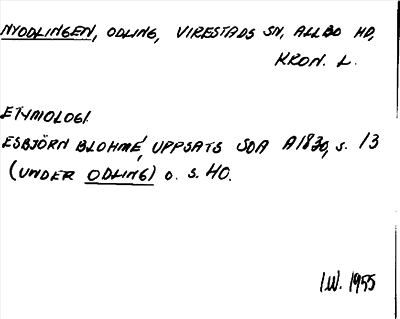 NYODLINGEN, ODLING, VIRESTADS SN, ALLBO HD,
KRON. L.
ETYMOLOGI
ESBJÖRN BLOHMÉ, UPPSATS SDA A1830, s. 13
(UNDER ODLING) o. s. 40.
I.W. 1955